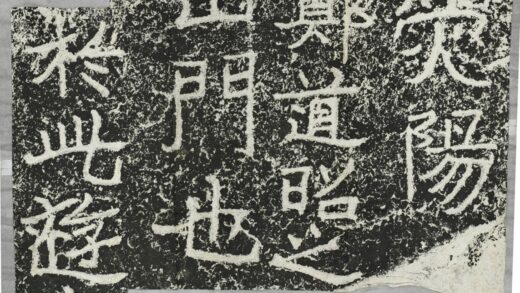 熒陽
鄭道昭之
山門也
於此遊